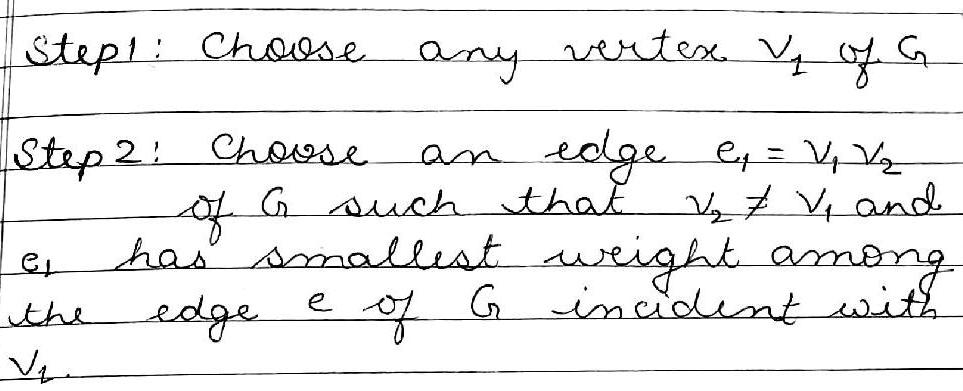 Step1: Choose any vertex V₁ of G
Step 2: Choose an edge e₁ = V₁ V₂
of G such that V₂ ≠ V₁ and
e₁ has smallest weight among
the edge e of G incident with
V₁.